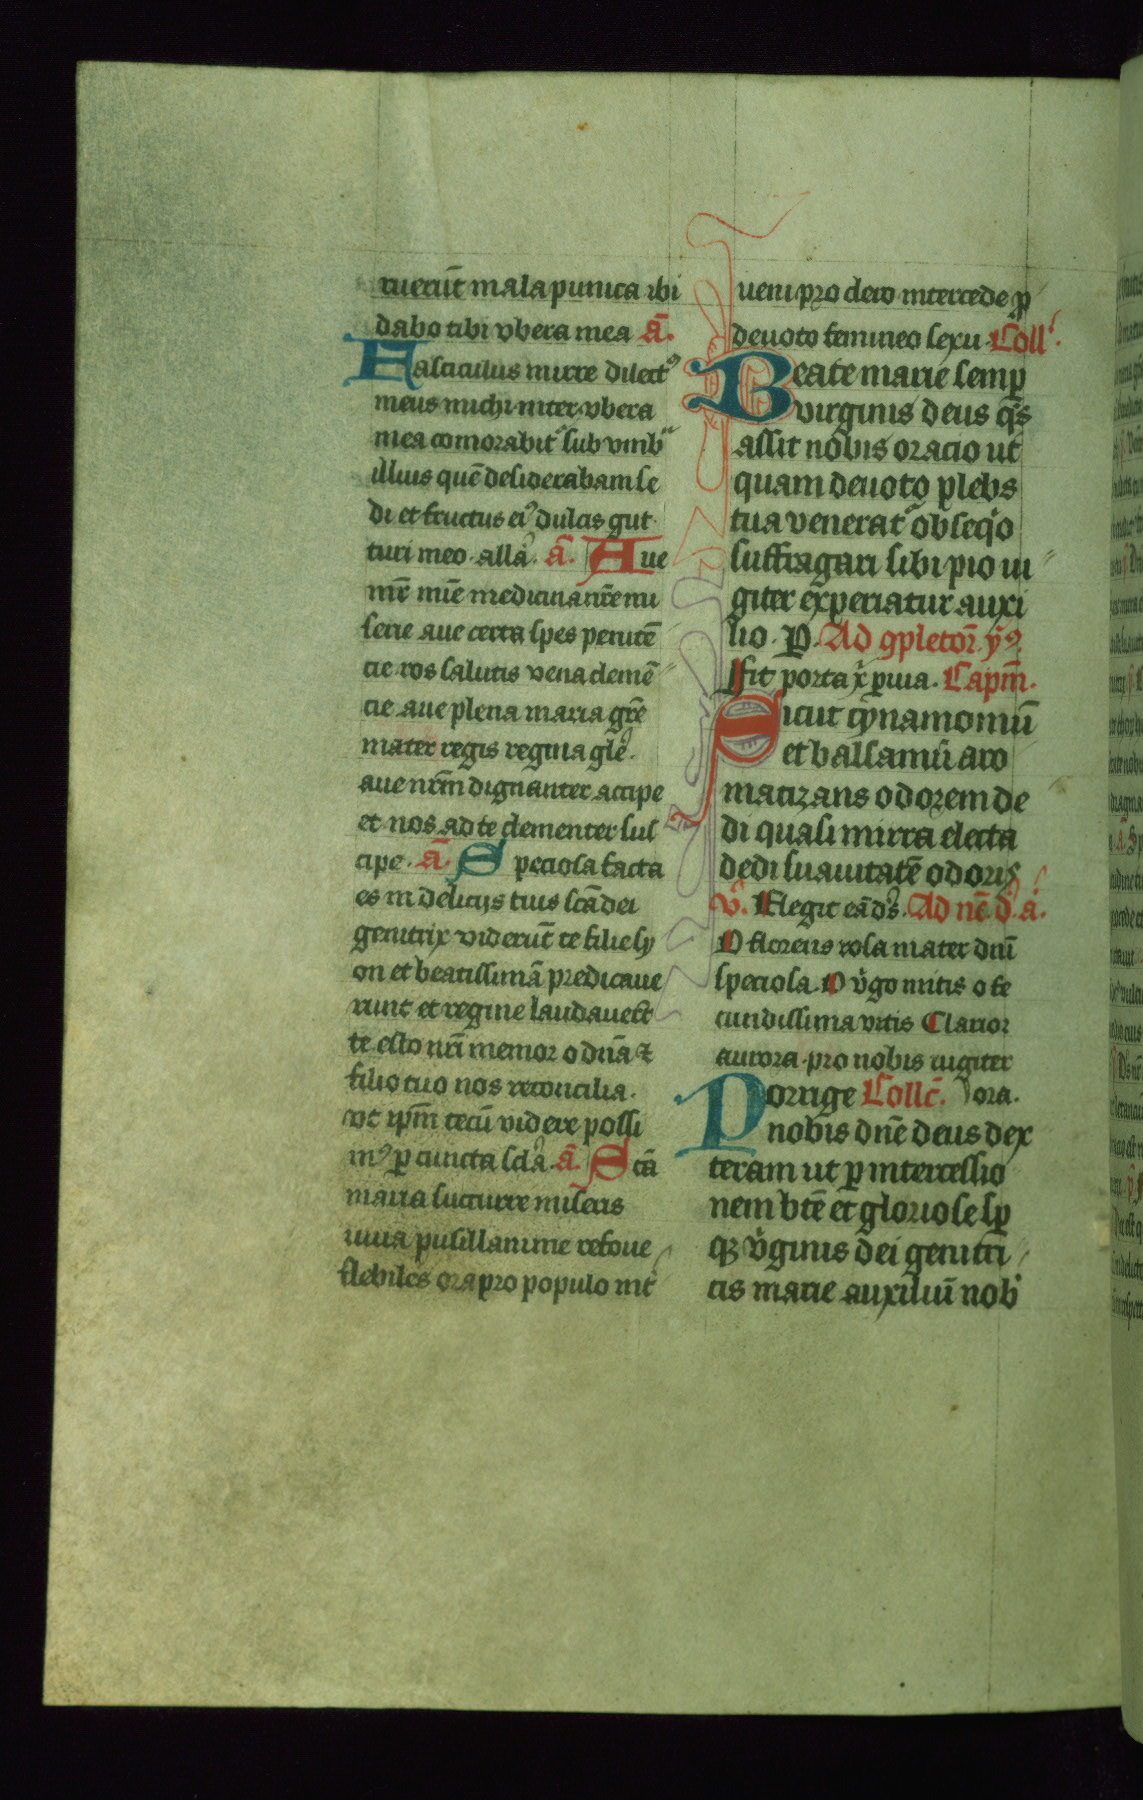 ruerūt mala punica ibi
dabo tibi vbera mea A̅.
Fasciculus mirre dilectꝰ
meus michi inter vbera
mea comorabit᷑ sub vmb᷑
illius quē desiderabam se
di et fructus eiꝰ dulcis gut
turi meo alla᷑. A̅. Aue
nr̄e mīe medicina nr̄e mi
serie aue certa spes penitē
cie ros salutis vena clemē
cie aue plena maria gr̄e
mater regis regina gle᷑.
aue nr̄m dignanter accipe
et nos ad te clementer sus
cipe. A̅. Speciosa facta
es in delicijs tuis scā dei
genitrix viderūt te filie sy
on et beatissimā predicaue
runt et regine laudauer̄t
te esto nr̄i memor o dn̄a ⁊
filio tuo nos reconcilia.
vt ip̄m tecū videre possi
mꝰ ꝑ cuncta scl᷑a. A̅. Scā
maria succurre miseris
iuua pusillanime refoue
flebiles ora pro populo int᷑
ueni pro clero intercede ꝓ
deuoto femineo sexu. Coll᷑.
Beate marie semꝑ
virginis deus qs̄
assit nobis oracio ut
quam deuoto plebs
tua venerat᷑ obseqͥo
suffragari sibi pio iu
giter exꝑiatur auxi
lio. P. Ad ꝯpletor̄. ỹꝰ.
Fit porta xͥ ꝑuia. Capm̄.
Sicut cynamomū
et balsamū aro
matizans odorem de
di quasi mirra electa
dedi suauitatē odoris
V᷑. Elegit eā ds᷑. Ad nc̄ d᷑ a᷑.
O florens rosa mater dn̄i
speciosa. O v᷑go mitis o fe
cundissima vitis Clarior
aurora pro nobis iugiter
ora.
Porrige Collc̄.
nobis dn̄e deus dex
teram ut ꝑ intercessio
nem bt̄e et gloriose sꝑ
qꝫ v᷑ginis dei genitri
cis marie auxiliū nob᷑